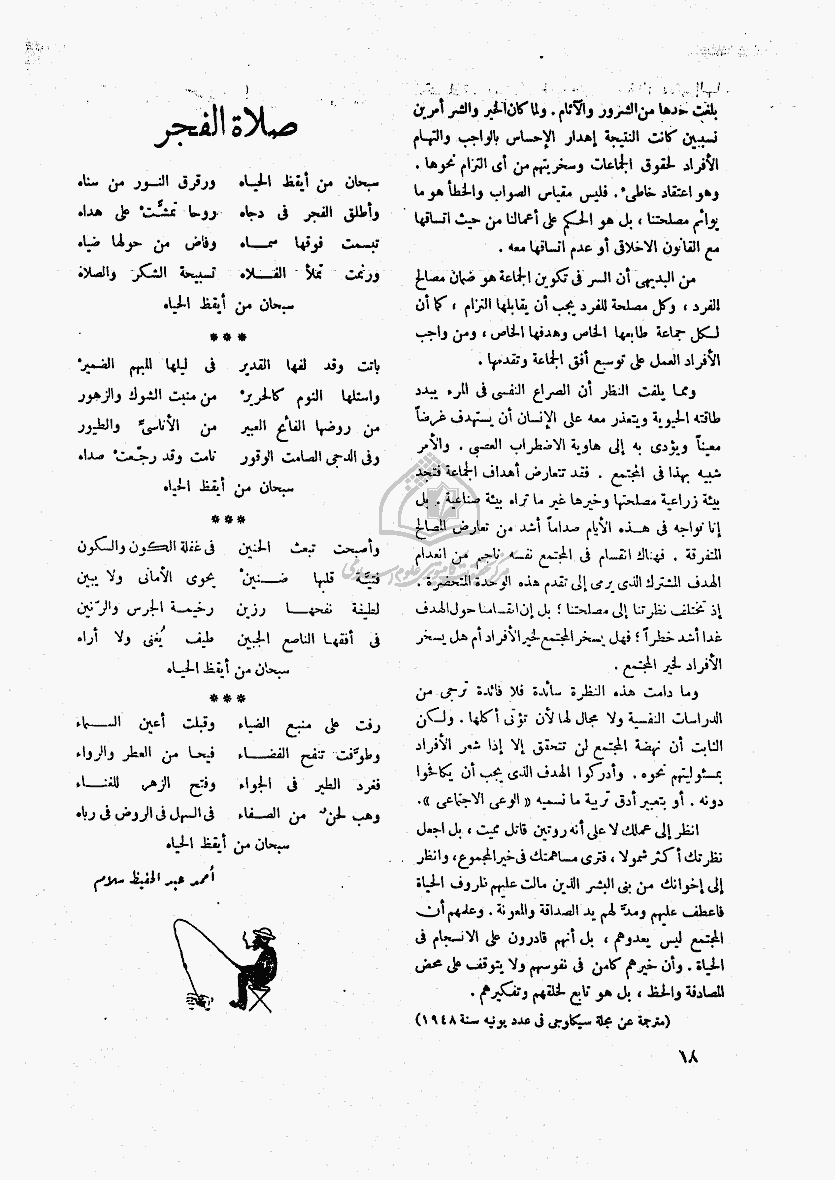 بلغت حدها من الشرور والآثام . ولما كان الخير والشر أمرين
نسبيين كانت النتيجة إهدار الإحساس بالواجب والتهام
الأفراد لحقوق الجماعات وسخريتهم من أى التزام نحوها .
وهو اعتقاد خاطىء . فليس مقياس الصواب والخطأ هو ما
يوائم مصلحتنا ، بل هو الحكم على أعمالنا من حيث اتساقها
مع القانون الاخلاقى أو عدم اتساقها معه .
من البديهى أن السر فى تكوين الجماعة هو ضمان مصالح
الفرد ، وكل مصلحة للفرد يجب أن يقابلها التزام ، كما أن
لكل جماعة طابعها الخاص وهدفها الخاص ، ومن واجب
الأفراد العمل على توسيع أفق الجماعة وتقدمها .
ومما يلفت النظر أن الصراع النفسى فى المرء يبدد
طاقته الحيوية ويتعذر معه على الإنسان أن يستهدف غرضاً
معيناً ويؤدى به إلى هاوية الاضطراب العصبى . والأمر
شبيه بهذا فى المجتمع . فقد تتعارض أهداف الجماعة فتجد
بيئة زراعية مصلحتها وخيرها غير ما تراه بيئة صناعية . بل
إنا نواجه فى هذه الأيام صداماً أشد من تعارض المصالح
المتفرقة . فهناك انقسام فى المجتمع نفسه ناجم من انعدام
الهدف المشترك الذى يرمى إلى تقدم هذه الوحدة المتحضرة .
إذ تختلف نظرتنا إلى مصلحتنا ؛ بل إن انقسامنا حول الهدف
غدا أشد خطراً ؛ فهل يسخر المجتمع لخير الأفراد أم هل يسخر
الأفراد لخير المجتمع .
وما دامت هذه النظرة سائدة فلا فائدة ترجى من
الدراسات النفسية ولا مجال لها لأن تؤتى أكلها . ولكن
الثابت أن نهضة المجتمع لن تتحقق إلا إذا شعر الأفراد
بمسئوليتهم نحوه . وأدركوا الهدف الذى يجب أن يكافحوا
دونه . أو بتعبير أدق تربية ما نسميه « الوعى الاجتماعى ».
انظر إلى عملك لا على أنه روتين قاتل مميت ، بل اجعل
نظرتك أكثر شمولا ، فترى مساهمتك فى خير المجموع ، وانظر
إلى إخوانك من بنى البشر الذين مالت عليهم ظروف الحياة
فاعطف عليهم ومدّ لهم يد الصداقة والمعونة . وعلمهم أن
المجتمع ليس بعدوهم ، بل أنهم قادرون على الانسجام فى
الحياة . وأن خيرهم كامن فى نفوسهم ولا يتوقف على محض
المصادفة والحظ ، بل هو تابع لخلقهم وتفكيرهم .
(مترجمة عن مجلة سيكلوجى فى عدد يونيه سنة ١٩٤٨)
صلاة الفجر
سبحان من أيقظ الحياه ورقرق النور من سناه
وأطلق الفجر فى دجاه روحا تمشّت على هداه
تبسمت فوقها سماه وفاض من حولها ضياه
ورنمت تملأ الفلاه تسبيحة الشكر والصلاه
سبحان من أيقظ الحياه
***
باتت وقد لفها القدير فى ليلها الملهم الضمير
واستلها النوم كالحرير من منبت الشوك والزهور
من روضها الفائح العبير من الأناسىّ والطيور
وفى الدجى الصامت الوقور نامت وقد رجّعت صداه
سبحان من أيقظ الحياه
***
وأصبحت تبعث الحنين فى غفلة الكون والسكون
فتيّة قلبها ضنين يحوى الأمانى ولا يبين
لطيفة نفحها رزين رخيمة الجرس والرّنين
فى أفقها الناصع الجبين طيف يُغنى ولا أراه
سبحان من أيقظ الحياه
***
رفت على منبع الضياء وقبلت أعين السماء
وطوّفت تنفح الفضاء فيحا من العطر والرواء
فغرد الطير فى الجواء وفتح الزهر للغناء
وهب لحنٌ من الصفاء فى السهل فى الروض فى رباه
سبحان من أيقظ الحياه
أحمد عبد الحفيظ سلام
١٨